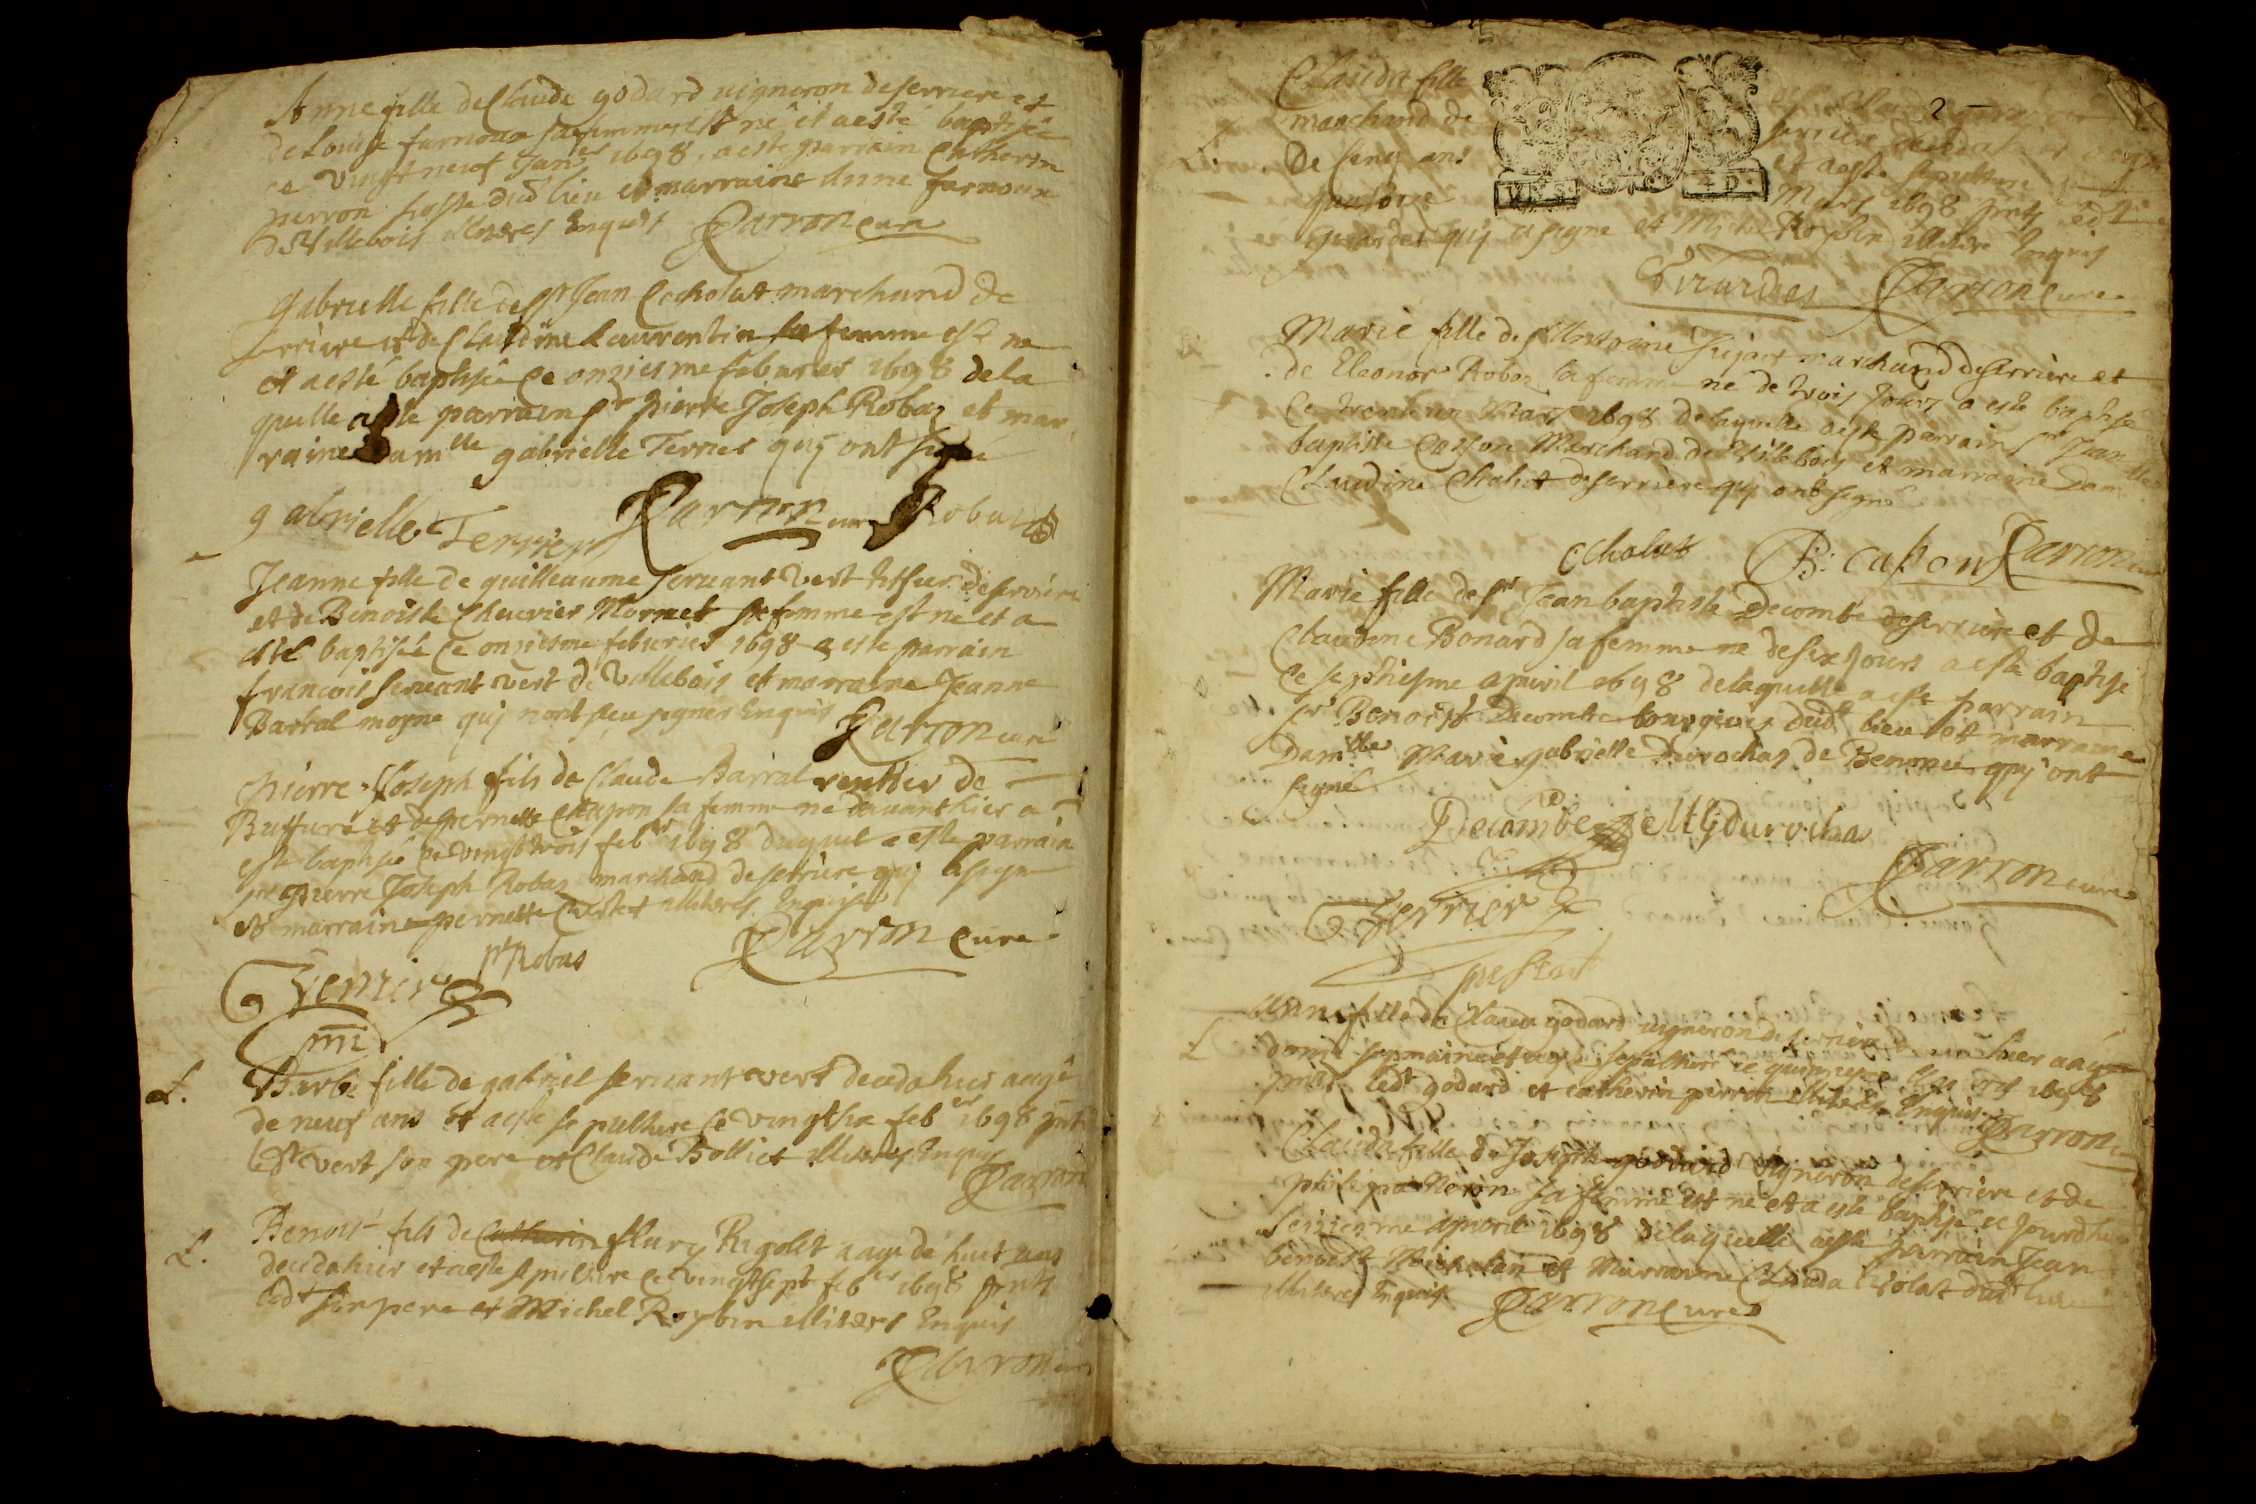 Anne fille de Claude godard vigneron de serriere et
de Louise farnoux sa femme est né et a esté baptisée
ce vingt neuf Janer 1698. a este parrain Catherin
perron hoste dud lieu et marraine Anne farnoux
de Villebois illiteres Enquist Parron cure
gabrielle fille de Sr Jean Cocholat marchand de
serriere et de Claudine Laurentin sa femme est ne
et a esté baptisée ce onziesme februrier 1698 de la
quelle a este parrain Sr pierre Joseph Robaz et mar
raine Damlle gabrielle Terrier quj ont signé
gabrielle Terrier Parron cure Robaz
Jeanne fille de guilleaume seruant vert de serriere
et de Benoiste Cheuvier Mornet sa femme est ne et a
esté baptisée Ce onziesme februrier 1698 a este parrain
francois seruant vert de Villebois et marraine Jeanne
Barral mogne quj nont sceu signer Enquis Parron curé
pierre Joseph fils de Claude Barral rentier de
Buffura et de pernette Chapon sa femme né dauanthier a
este baptisé ce vingt trois febr 1698 duquel a este parrain
Sr pierre Joseph Robaz marchand de serriere quj a signe
et marraine pernette illiteres Enquise
Pr Robas Parron Cure
Terrier
Barbe fille de gabriel seruant vert decedahier aagé
de neuf ans et a este sepulture ce vingt six feber 1698 pnts
led vert son pere et Claude Bolliet illiteres Enquis
Parron
Benoist fils de Catherin fleury Rigolet aage de huit ans
decedahier et a este sepulture ce vingt sept feber 1698 pnts
led son pere et Michel Roybin illiteres Enquis
Parron cure
2
Clauda fille
marchand de serriere decedahier
De cinq ans et a este sepulture
Mars 1698 pnts led
girardet quj a signe et Michel Roybin illitere Enquis
Girardet Parron Cure
Marie fille de Sr Antoine marchand de serriere et
de Eleonor Robaz sa femme ne de trois Jours a este baptisé
Ce trente un Mars 1698 de laquelle a este parrain Sr Jean
baptiste Casson Marchand de Villebois et marraine Damlle
Claudine Cholat de serriere quj ont signe
CCholat B. Casson Parron cure
Marie fille de Sr Jean baptiste Decombe de serriere et de
Claudine Bonard sa femme ne de six Jours a este baptise
Ce septiesme apuril 1698 de laquelle a este parrain
Sr Benoist Decombe bourgeois dud lieu et marraine
Damlle Marie gabrielle Durochas de Benonce quj ont
signé
Decombe MGdurocha
Parron cure
Terrier
present
Anne fille de Claude godard vigneron de serriere decedahier aagee
pnts led godard et catherin perron illiteres Enquis
Parron
Clauda fille de Joseph goddard vigneron de serriere et de
sa femme est né et a esté baptisé ce Jourdhuy
seiziesme apuril 1698 de laquelle a este parrain Jean
benoist Michelon et Marraine Clauda Cholat dud lieu
illiteres Enquis Parron Cure